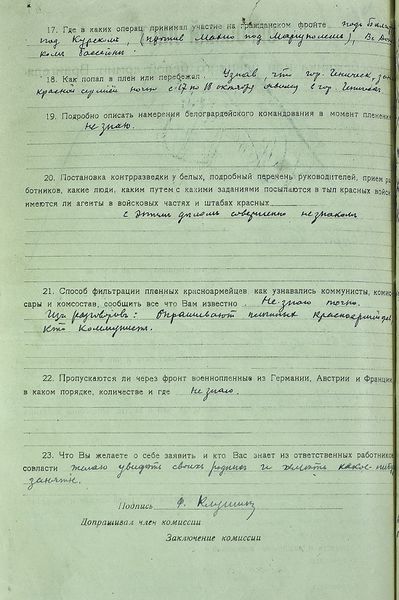 17. Где в каких операц принимал участие на гражданском фронте под
под Курском, (против Махно под Мариуполем),
18. Как попал в плен или перебежал. Узнав, что гор. Геническ,
красной ночь с 17 по 18 октября в гор. Геническ
19. Подробно описать намерения белогвардейского командования в момент пленения
не знаю.
20. Постановка контрразведки у белых, подробный перечень руководителей, прием ра
ботников, какие люди, каким путем с какими заданиями посылаются в тыл красных войск
имеются ли агенты в войсковых частях и штабах красных
с этим делом совершенно незнаком
21. Способ фильтрации пленных красноармейцев как узнавались коммунисты, комис
сары и комсостав, сообщить все что Вам известно. Не знаю точно.
Из разговоров: Опрашивают пленных красноармейцев
кто коммунист.
22. Пропускаются ли через фронт военнопленные из Германии, Австрии и Франции
в каком порядке, количестве и где не знаю.
23. Что Вы желаете о себе заявить и кто Вас знает из ответственных работников
совласти желаю увидеть своих родных и какое-нибудь
занятие.
Подпись Ф.
Допрашивал член комиссии
Заключение комиссии